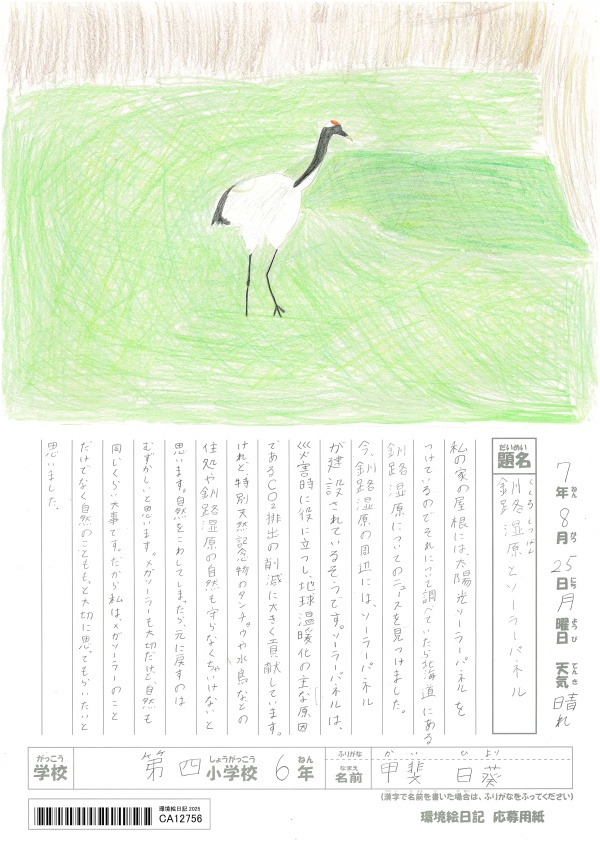 7年8月25日月曜日 天気 晴れ
ねん がつ にち ようび てんき
だいめい
題名
くしろしつげん
釧路湿原とソーラーパネル
私の家の屋根には、太陽光ソーラーパネルを
つけているのでそれについて調べていたら北海道にある
釧路湿原についてのニュースを見つけました。
今、釧路湿原の周辺には、ソーラーパネル
が建設されているそうです。ソーラーパネルは、
災害時に役に立つし、地球温暖化の主な原因
であるCO2排出の削減に大きく貢献しています。
けれど、特別天然記念物のタンチョウや水鳥などの
住処や釧路湿原の自然も守らなくちゃいけないと
思います。自然をこわしてしまったら、元に戻すのは
むずかしいと思います。メガソーラーも大切だけど、自然も
同じくらい大事です。だから私は、メガソーラーのこと
だけでなく自然のことももっと大切に思ってもらいたいと
思いました。
がっこう
学校
第四小学校 6年
しょうがっこう ねん
ふりがな かい ひより
なまえ
名前 甲斐 日葵
(漢字で名前を書いた場合は、ふりがなをふってください)
環境絵日記 応募用紙
環境絵日記 2025
CA12756